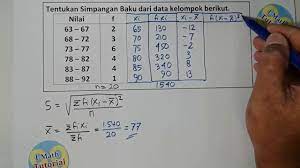 Tentukan Simpangan Baku dari data kelompok berikut.
Nilai f xi fi xi xi - x̄ fi(xi - x̄)²
63 – 67 2 65 130 -12
68 – 72 3 70 210 -7
73 – 77 6 75 450 -2
78 – 82 4 80 320 3
83 – 87 4 85 340 8
88 – 92 1 90 90 13
n = 20 1540
S = √ Σ fi (xi - x̄)² / n
x̄ = Σ fi xi / Σ fi = 1540 / 20 = 77
Math
Tutorial